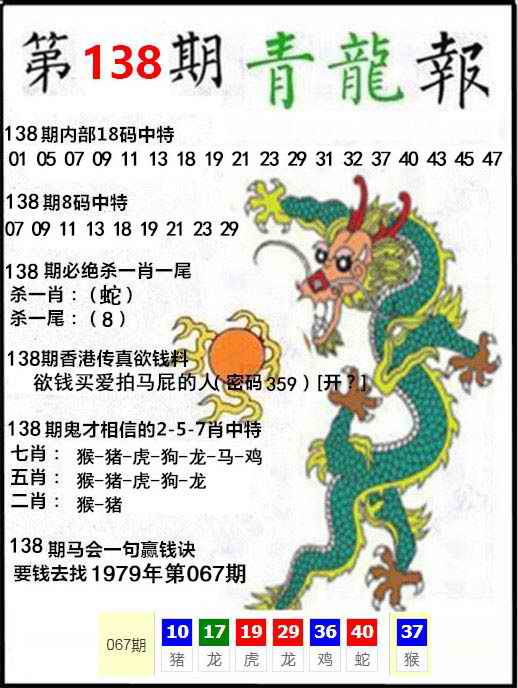 第138期青龍報
138期内部18码中特
01 05 07 09 11 13 18 19 21 23 29 31 32 37 40 43 45 47
138期8码中特
07 09 11 13 18 19 21 23 29
138 期必绝杀一肖一尾
杀一肖：（蛇）
杀一尾：（8）
138期香港传真欲钱料
欲钱买爱拍马屁的人（密码359）[开？]
138期鬼才相信的2-5-7肖中特
七肖： 猴-猪-虎-狗-龙-马-鸡
五肖： 猴-猪-虎-狗-龙
二肖： 猴-猪
138期马会一句赢钱诀
要钱去找1979年第067期
067期 10 17 19 29 36 40 37
猪 龙 虎 龙 鸡 蛇 猴